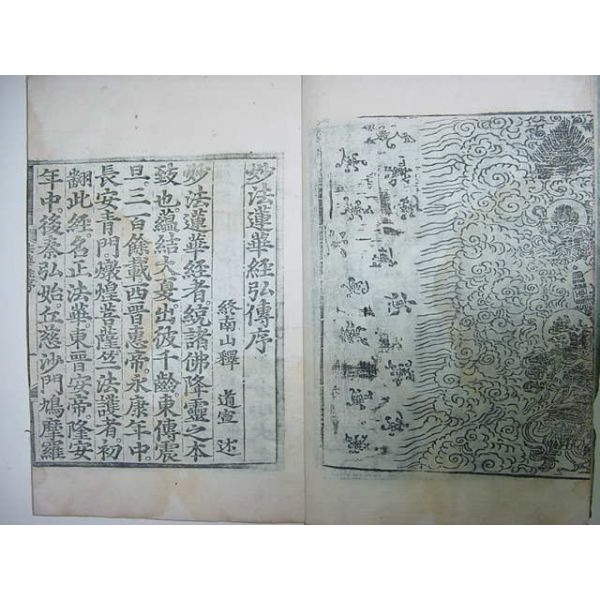 妙法蓮華經弘傳序
終南山釋 道宣 述
妙法蓮華經者統諸佛降靈之本
致也。蘊結大夏出彼千齡。東傳震
旦。三百餘載西晉惠帝。永康年中。
長安青門。燉煌菩薩竺法護者。初
翻此經名正法華。東晉安帝。隆安
年中。後秦弘始。丘慈沙門鳩摩羅